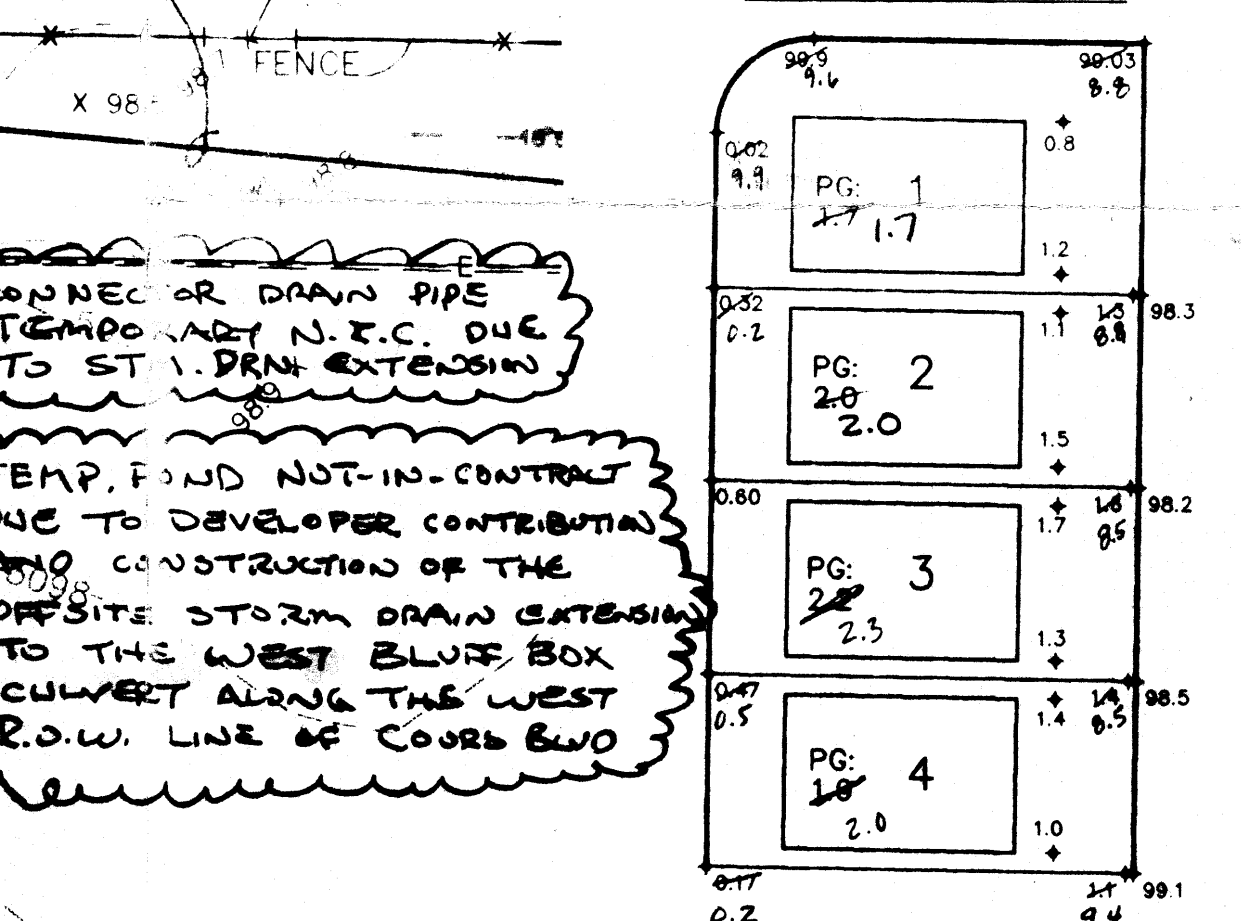 FENCE
X 98
98.8
E
CONNECTOR DRAIN PIPE
TEMPORARY N.I.C. DUE
TO STM. DRN. EXTENSION
98.9
TEMP. POND NOT-IN-CONTRACT
DUE TO DEVELOPER CONTRIBUTION
AND CONSTRUCTION OF THE
OFFSITE STORM DRAIN EXTENSION
TO THE WEST BLUFF BOX
CULVERT ALONG THE WEST
R.O.W. LINE OF COORS BLVD
99.9 99.03
9.6 8.8
0.8
0.02
9.9
PG: 1
1.7
1.7
1.2
0.32 1.3 98.3
0.2 1.1
PG: 2
2.0
2.0
1.5
0.60 98.2
1.7 8.5
PG: 3
2.3
1.3
0.47 1.4 98.5
0.5 1.4 8.5
PG: 4
2.0
1.0
0.17 1.1 99.1
0.2 9.4